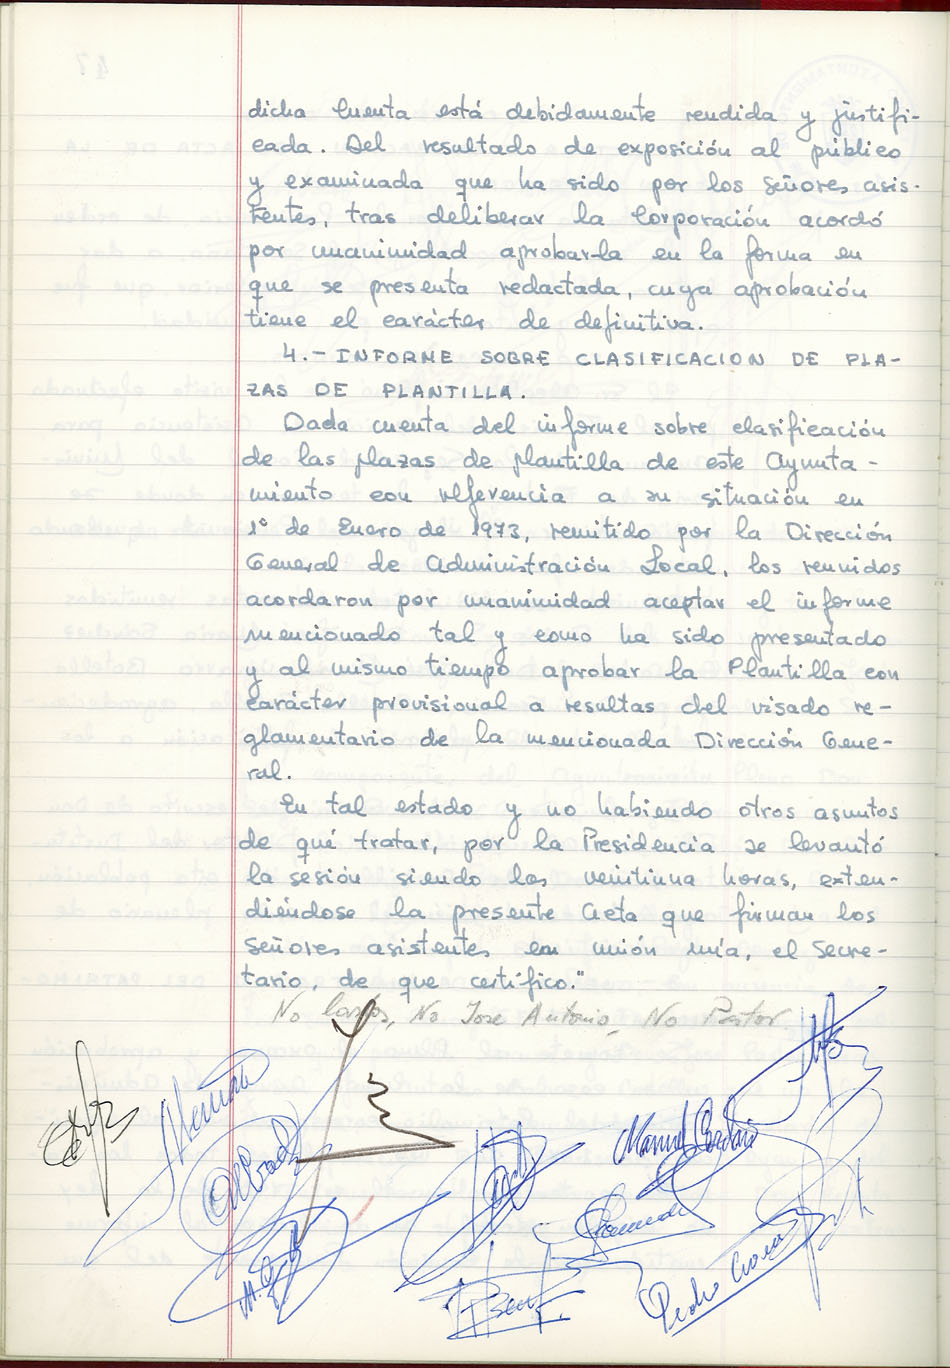 dicha Cuenta está debidamente rendida y justifi-
cada. Del resultado de exposición al público
y examinada que ha sido por los Señores asis-
tentes, tras deliberar la Corporación acordó
por unanimidad aprobar-la en la forma en
que se presenta redactada, cuya aprobación
tiene el carácter de definitiva.
4.- INFORME SOBRE CLASIFICACION DE PLA-
ZAS DE PLANTILLA.
Dada cuenta del informe sobre clasificación
de las plazas de plantilla de este Ayunta-
miento con referencia a su situación en
1º de Enero de 1973, remitido por la Dirección
General de Administración Local, los reunidos
acordaron por unanimidad aceptar el informe
mencionado tal y como ha sido presentado
y al mismo tiempo aprobar la Plantilla con
carácter provisional a resultas del visado re-
glamentario de la mencionada Dirección Gene-
ral.
En tal estado y no habiendo otros asuntos
de qué tratar, por la Presidencia se levantó
la sesión siendo las veintiuna horas, exten-
diéndose la presente Acta que firman los
Señores asistentes en unión mía, el Secre-
tario, de que certifico."
No Carlos, No Jose Antonio, No Pastor
Manuel
Pedro